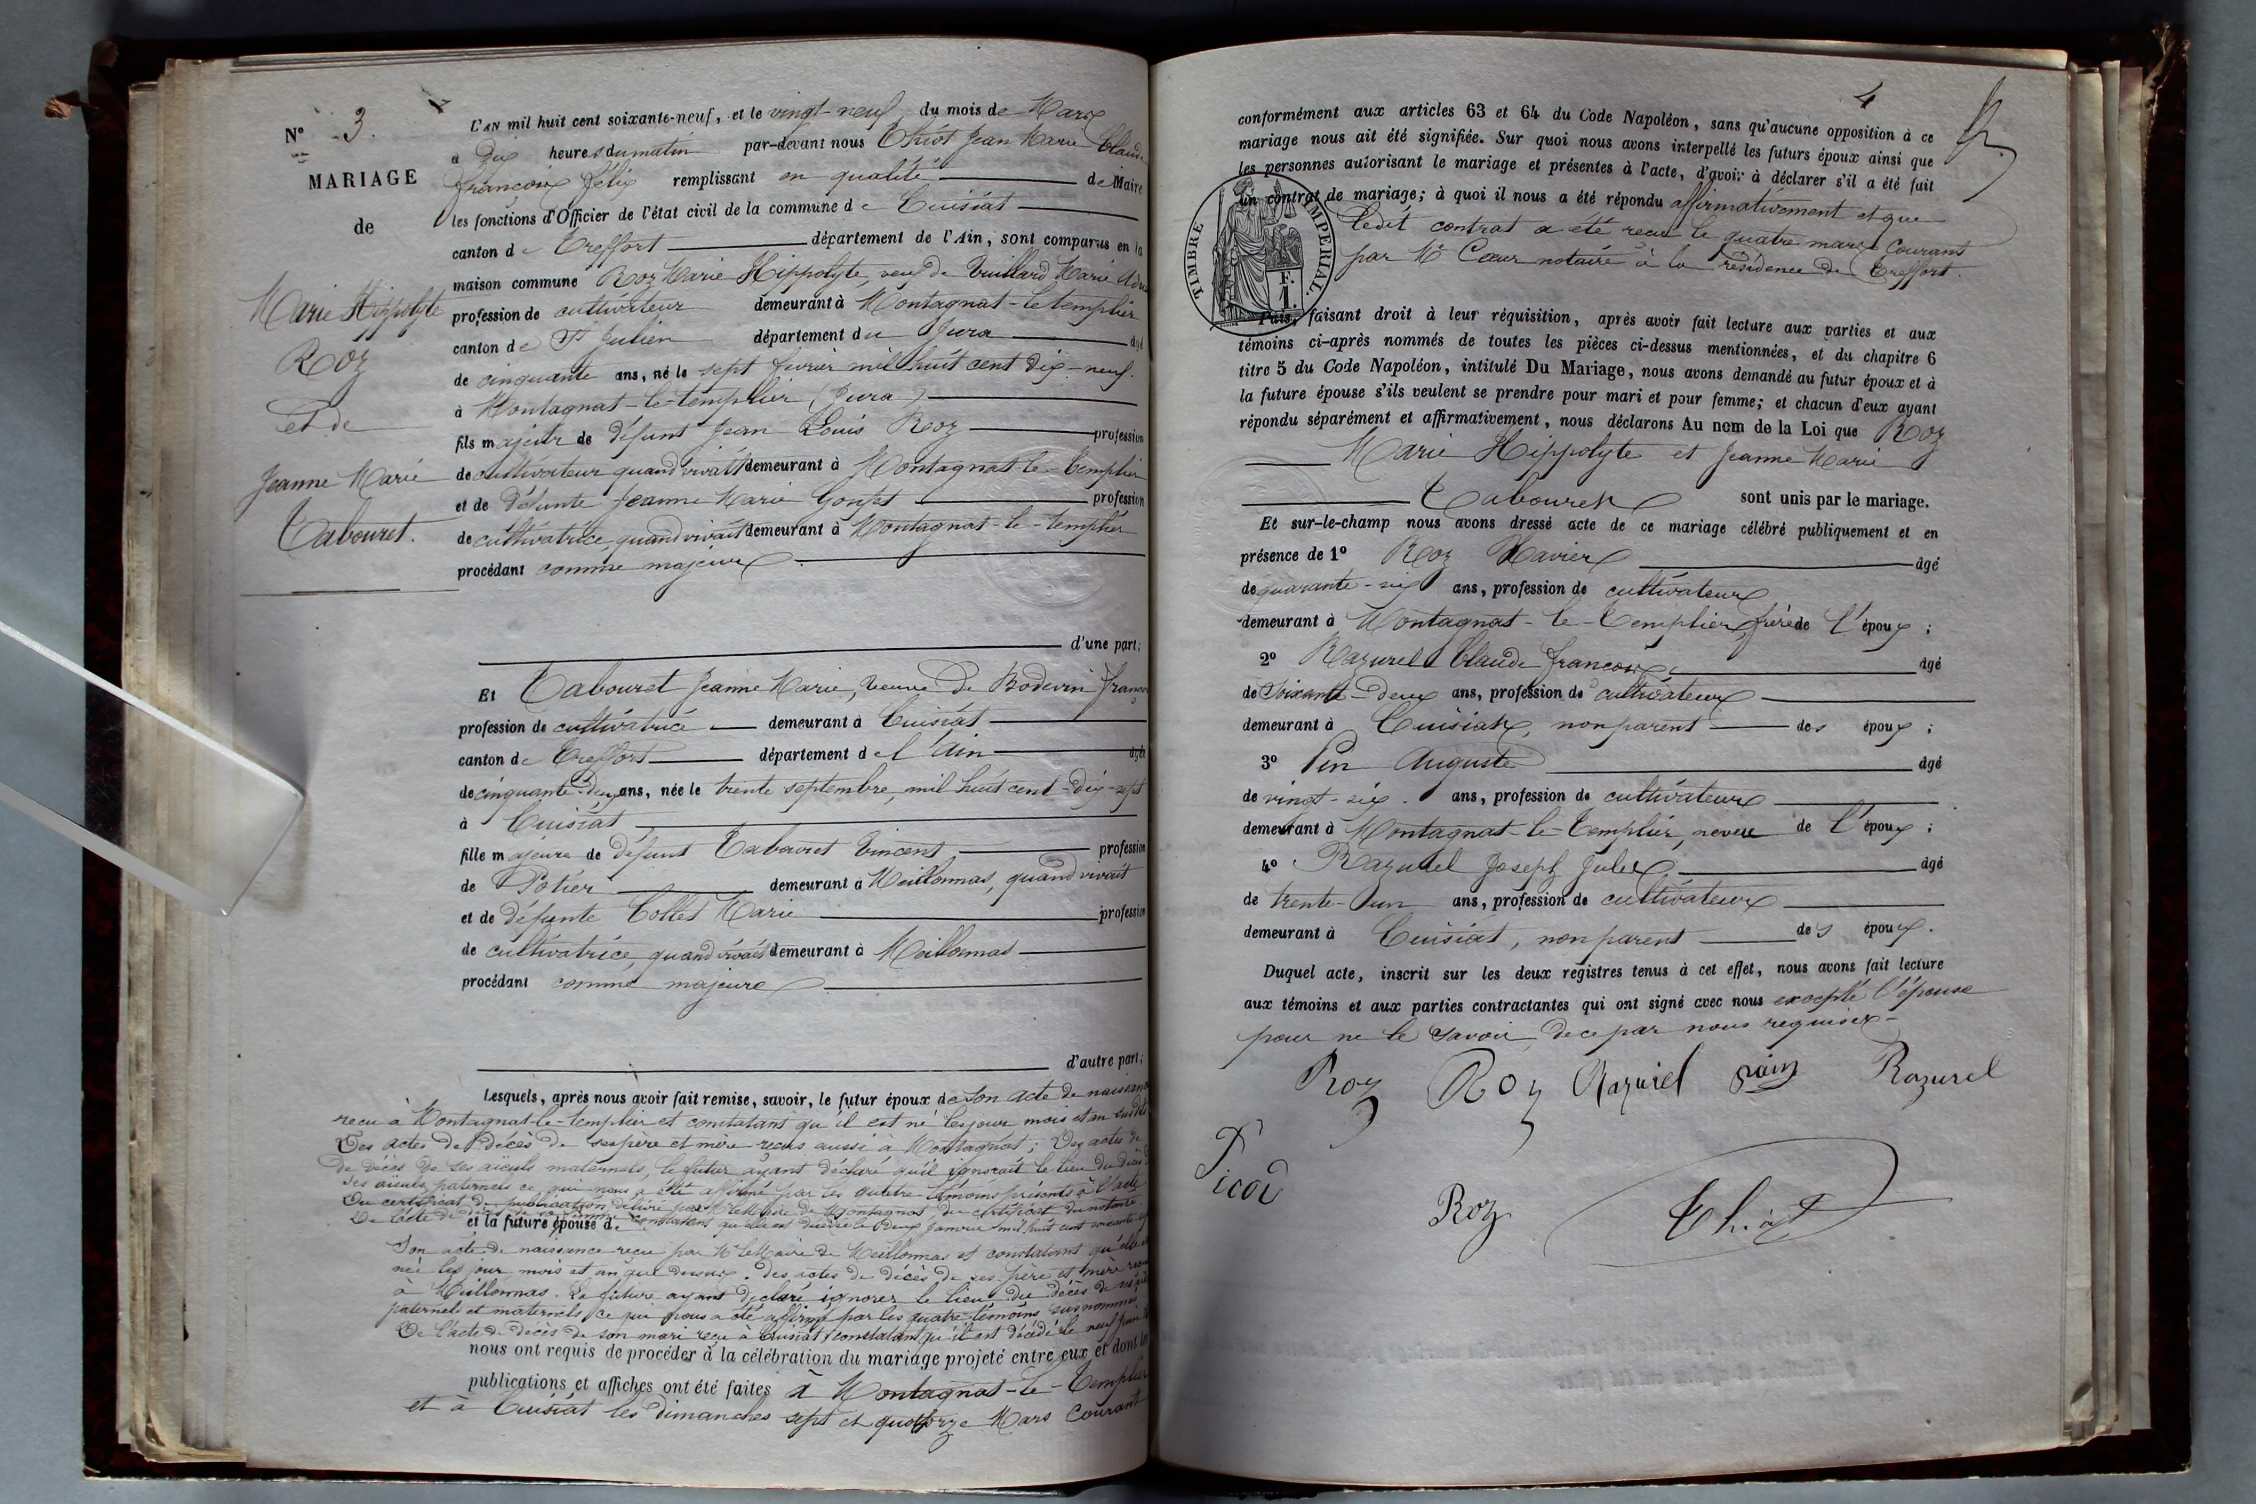 N° 3.
MARIAGE
de
Marie Hippolyte
Roz
et de
Jeanne Marie
Tabouret.
L'AN mil huit cent soixante-neuf, et le vingt-neuf du mois de Mars
à Dix heures du matin par-devant nous Thiot Jean Marie Claude
françois félix remplissant en qualité de Maire
les fonctions d'Officier de l'état civil de la commune de Cuisiat
canton de Treffort département de l'Ain, sont comparus en la
maison commune Roz Marie Hippolyte, veuf de Vuillard Marie
profession de cultivateur demeurant à Montagnat-le-templier
canton de St Julien département du Jura âgé
de cinquante ans, né le sept fevrier mil huit cent dix-neuf.
à Montagnat-le-templier (Jura)
fils majeur de défunt Jean Louis Roz profession
de cultivateur quand vivait demeurant à Montagnat-le-Templier
et de défunte Jeanne Marie profession
de cultivatrice quand vivait demeurant à Montagnat-le-templier
procédant comme majeur
d'une part;
Et Tabouret Jeanne Marie, veuve de Bodevin
profession de cultivatrice demeurant à Cuisiat
canton de Treffort département de l'Ain âgée
de cinquante-deux ans, née le trente septembre, mil huit cent-dix-sept
à Cuisiat
fille majeure de défunt Tabouret Vincent profession
de Potier demeurant à Meillonnas, quand vivait
et de défunte Collet Marie profession
de cultivatrice, quand vivait demeurant à Meillonnas
procédant comme majeure
d'autre part;
Lesquels, après nous avoir fait remise, savoir, le futur époux de son acte de naissance
reçu à Montagnat-le-templier et constatant qu'il est né les jour mois et an susdits
Des actes de décès de ses père et mère reçus aussi à Montagnat; Des actes de
de décès de ses aïeuls maternels, le futur ayant déclaré qu'il ignorait le lieu du décès
des aïeuls paternels ce qui nous a été affirmé par les quatre témoins présents à l'acte
Du certificat de publication délivré par Mr le Maire de Montagnat du certificat du notaire
De l'acte de décès de sa femme constatant qu'elle est décédée le deux Janvier mil huit cent soixante
et la future épouse de
Son acte de naissance reçu par Mr le Maire de Meillonnas et constatant qu'elle est
née les jour mois et an que dessus. Des actes de décès de ses père et mère reçus
à Meillonnas. La future ayant déclaré ignorer le lieu du décès de
paternels et maternels ce qui nous a été affirmé par les quatre témoins susnommés
De l'acte de décès de son mari reçu à Cuisiat constatant qu'il est décédé le neuf
nous ont requis de procéder à la célébration du mariage projeté entre eux et dont les
publications et affiches ont été faites à Montagnat-le-Templier
et à Cuisiat les dimanches sept et quatorze Mars Courant
4
conformément aux articles 63 et 64 du Code Napoléon, sans qu'aucune opposition à ce
mariage nous ait été signifiée. Sur quoi nous avons interpellé les futurs époux ainsi que
les personnes autorisant le mariage et présentes à l'acte, d'avoir à déclarer s'il a été fait
un contrat de mariage; à quoi il nous a été répondu affirmativement et que
Ledit contrat a été reçu le quatre mars Courant
par Me Cœur notaire à la résidence de Treffort.
TIMBRE IMPERIAL.
F.
1.
Puis, faisant droit à leur réquisition, après avoir fait lecture aux parties et aux
témoins ci-après nommés de toutes les pièces ci-dessus mentionnées, et du chapitre 6
titre 5 du Code Napoléon, intitulé Du Mariage, nous avons demandé au futur époux et à
la future épouse s'ils veulent se prendre pour mari et pour femme; et chacun d'eux ayant
répondu séparément et affirmativement, nous déclarons Au nom de la Loi que Roz
Marie Hippolyte et Jeanne Marie
Tabouret sont unis par le mariage.
Et sur-le-champ nous avons dressé acte de ce mariage célébré publiquement et en
présence de 1° Roz Xavier âgé
de quarante-six ans, profession de cultivateur
demeurant à Montagnat-le-Templier, frère de l'époux;
2° Razurel Claude françois âgé
de Soixante-deux ans, profession de cultivateur
demeurant à Cuisiat, non parent des époux;
3° Pin Auguste âgé
de vingt-six ans, profession de cultivateur
demeurant à Montagnat-le-Templier, neveu de l'époux;
4° Razurel Joseph Jules âgé
de trente-un ans, profession de cultivateur
demeurant à Cuisiat, non parent des époux.
Duquel acte, inscrit sur les deux registres tenus à cet effet, nous avons fait lecture
aux témoins et aux parties contractantes qui ont signé avec nous excepté l'épouse
pour ne le savoir, de ce par nous requise
Roz Roz Razurel pain Razurel
Picod
Roz Thiot